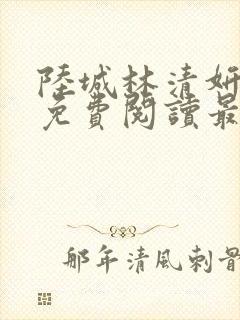 陸城林清妍
免費閱讀最
那年清風刺骨